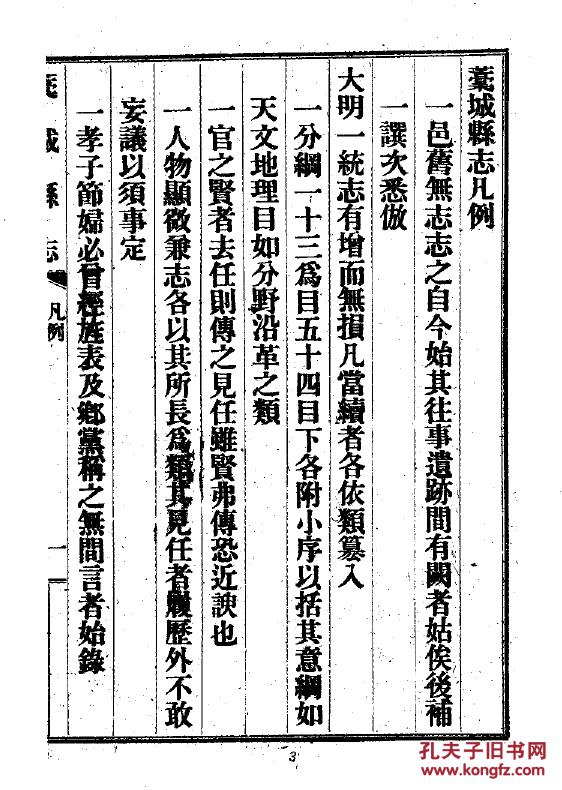 藳城縣志凡例
一邑舊無志志之自今始其往事遺跡間有闕者姑俟後補
一譔次悉倣
大明一統志有增而無損凡當續者各依類纂入
一分綱一十三爲目五十四目下各附小序以括其意綱如
天文地理目如分野沿革之類
一官之賢者去任則傳之見任雖賢弗傳恐近諛也
一人物顯微兼志各以其所長爲類其見任者履歷外不敢
妄議以須事定
一孝子節婦必曾經旌表及鄉黨稱之無間言者始錄
藳城縣志
凡例
一
3
孔夫子旧书网
www.kongfz.com